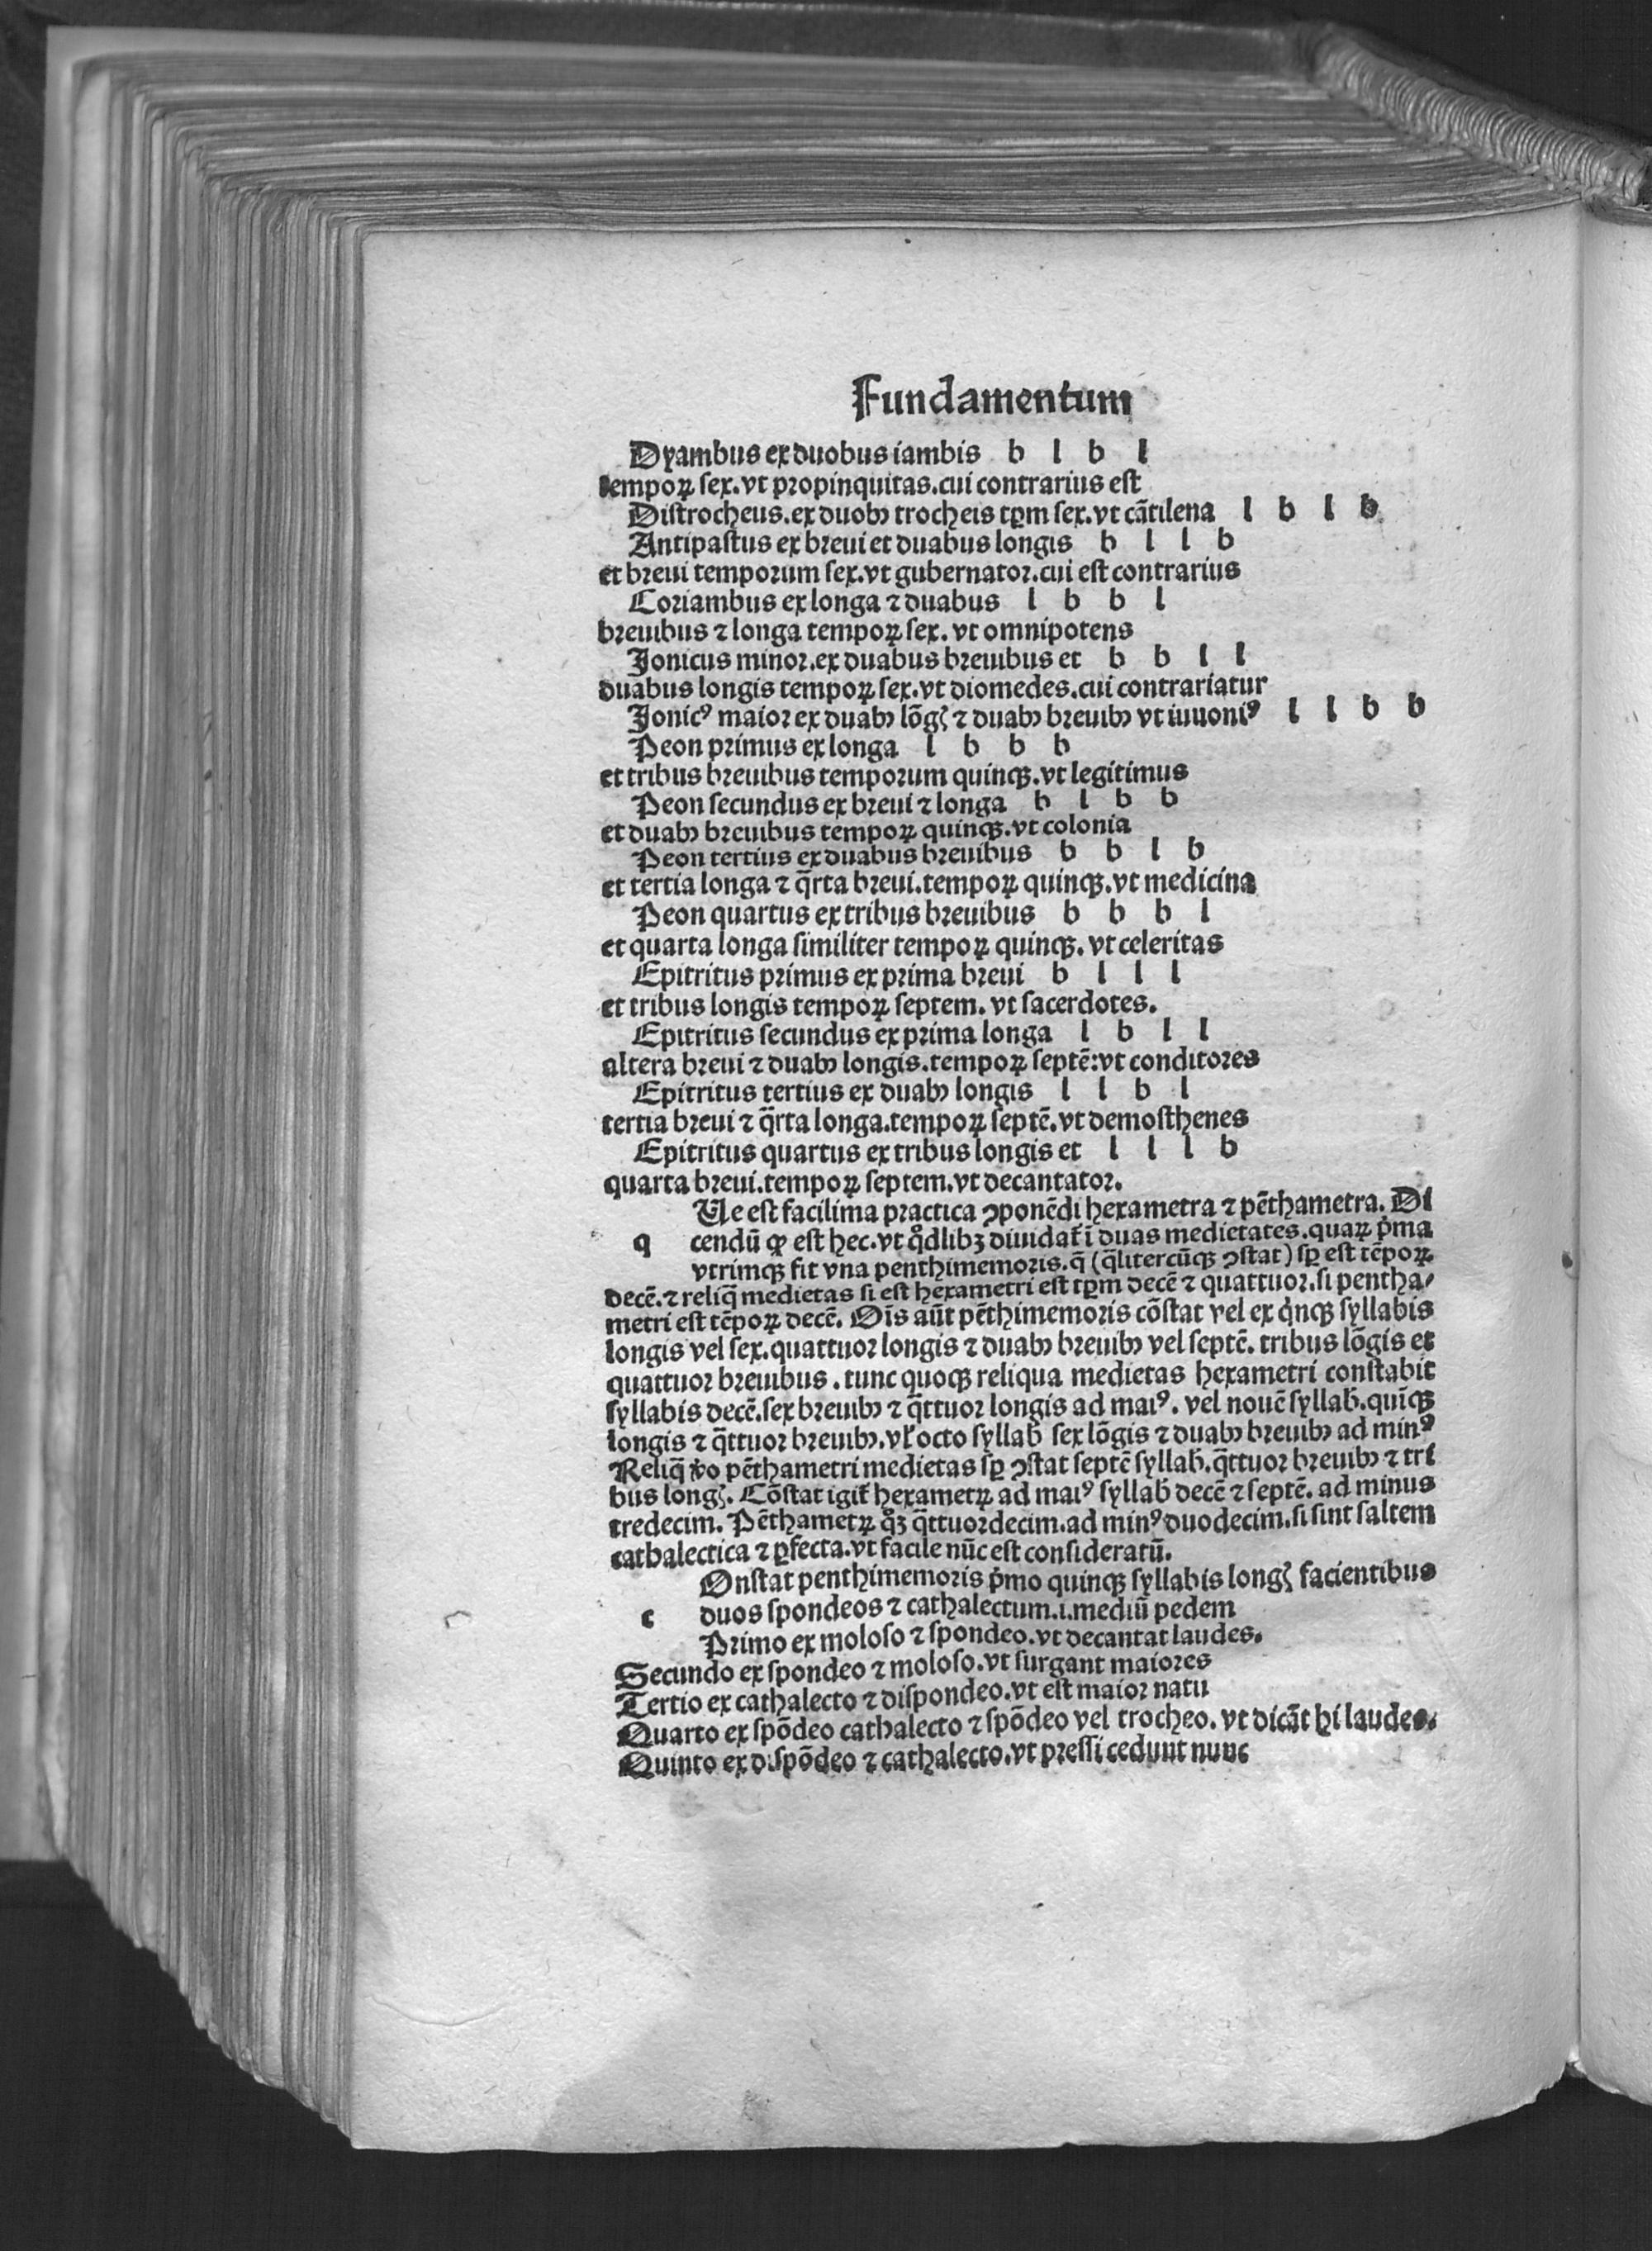 Fundamentum
Dyambus ex duobus iambis b l b l
tempoꝝ sex. vt propinquitas. cui contrarius est
Distrocheus. ex duobꝰ trocheis tꝑm sex. vt cãtilena l b l b
Antipastus ex breui et duabus longis b l l b
et breui temporum sex. vt gubernator. cui est contrarius
Coriambus ex longa ⁊ duabus l b b l
breuibus ⁊ longa tempoꝝ sex. vt omnipotens
Jonicus minor. ex duabus breuibus et b b l l
duabus longis tempoꝝ sex. vt diomedes. cui contrariatur
Jonicꝰ maior ex duabꝰ lõgꝭ ⁊ duabꝰ breuibꝰ vt iuuoniꝰ l l b b
Peon primus ex longa l b b b
et tribus breuibus temporum quinqꝫ. vt legitimus
Peon secundus ex breui ⁊ longa b l b b
et duabꝰ breuibus tempoꝝ quinqꝫ. vt colonia
Peon tertius ex duabus breuibus b b l b
et tertia longa ⁊ q̃rta breui. tempoꝝ quinqꝫ. vt medicina
Peon quartus ex tribus breuibus b b b l
et quarta longa similiter tempoꝝ quinqꝫ. vt celeritas
Epitritus primus ex prima breui b l l l
et tribus longis tempoꝝ septem. vt sacerdotes.
Epitritus secundus ex prima longa l b l l
altera breui ⁊ duabꝰ longis. tempoꝝ septẽ: vt conditores
Epitritus tertius ex duabꝰ longis l l b l
tertia breui ⁊ q̃rta longa. tempoꝝ septẽ. vt demosthenes
Epitritus quartus ex tribus longis et l l l b
quarta breui. tempoꝝ septem. vt decantator.
Ue est facilima practica ꝯponẽdi hexametra ⁊ pẽthametra. Di
q cendũ ꝙ est hec. vt qͦdlibꝫ diuidat᷑ ĩ duas medietates. quaꝝ pͥma
vtrimqꝫ fit vna penthimemoris. q̃ (q̃litercũqꝫ ꝯstat) sꝑ est tẽpoꝝ
decẽ. ⁊ reliq̃ medietas si est hexametri est tꝑm decẽ ⁊ quattuor. si pentha/
metri est tẽpoꝝ decẽ. Oĩs aũt pẽthimemoris cõstat vel ex qͥnqꝫ syllabis
longis vel sex. quattuor longis ⁊ duabꝰ breuibꝰ vel septẽ. tribus lõgis et
quattuor breuibus. tunc quoqꝫ reliqua medietas hexametri constabit
syllabis decẽ. sex breuibꝰ ⁊ q̃ttuor longis ad maiꝰ. vel nouẽ syllab̃. quĩqꝫ
longis ⁊ q̃ttuor breuibꝰ. vl̃ octo syllab̃ sex lõgis ⁊ duabꝰ breuibꝰ ad minꝰ
Reliq̃ ṽo pẽthametri medietas sꝑ ꝯstat septẽ syllab̃. q̃ttuor breuibꝰ ⁊ tri
bus longꝭ. Cõstat igit᷑ hexametꝝ ad maiꝰ syllab̃ decẽ ⁊ septẽ. ad minus
tredecim. Pẽthametꝝ qͦꝫ q̃ttuordecim. ad minꝰ duodecim. si sint saltem
cathalectica ⁊ ꝑfecta. vt facile nũc est consideratũ.
Onstat penthimemoris pͥmo quinqꝫ syllabis longꝭ facientibus
c duos spondeos ⁊ cathalectum. i. mediũ pedem
Primo ex moloso ⁊ spondeo. vt decantat laudes.
Secundo ex spondeo ⁊ moloso. vt surgant maiores
Tertio ex cathalecto ⁊ dispondeo. vt est maior natu
Quarto ex spõdeo cathalecto ⁊ spõdeo vel trocheo. vt dicãt hi laudes.
Quinto ex dispõdeo ⁊ cathalecto. vt pressi cedunt nunc